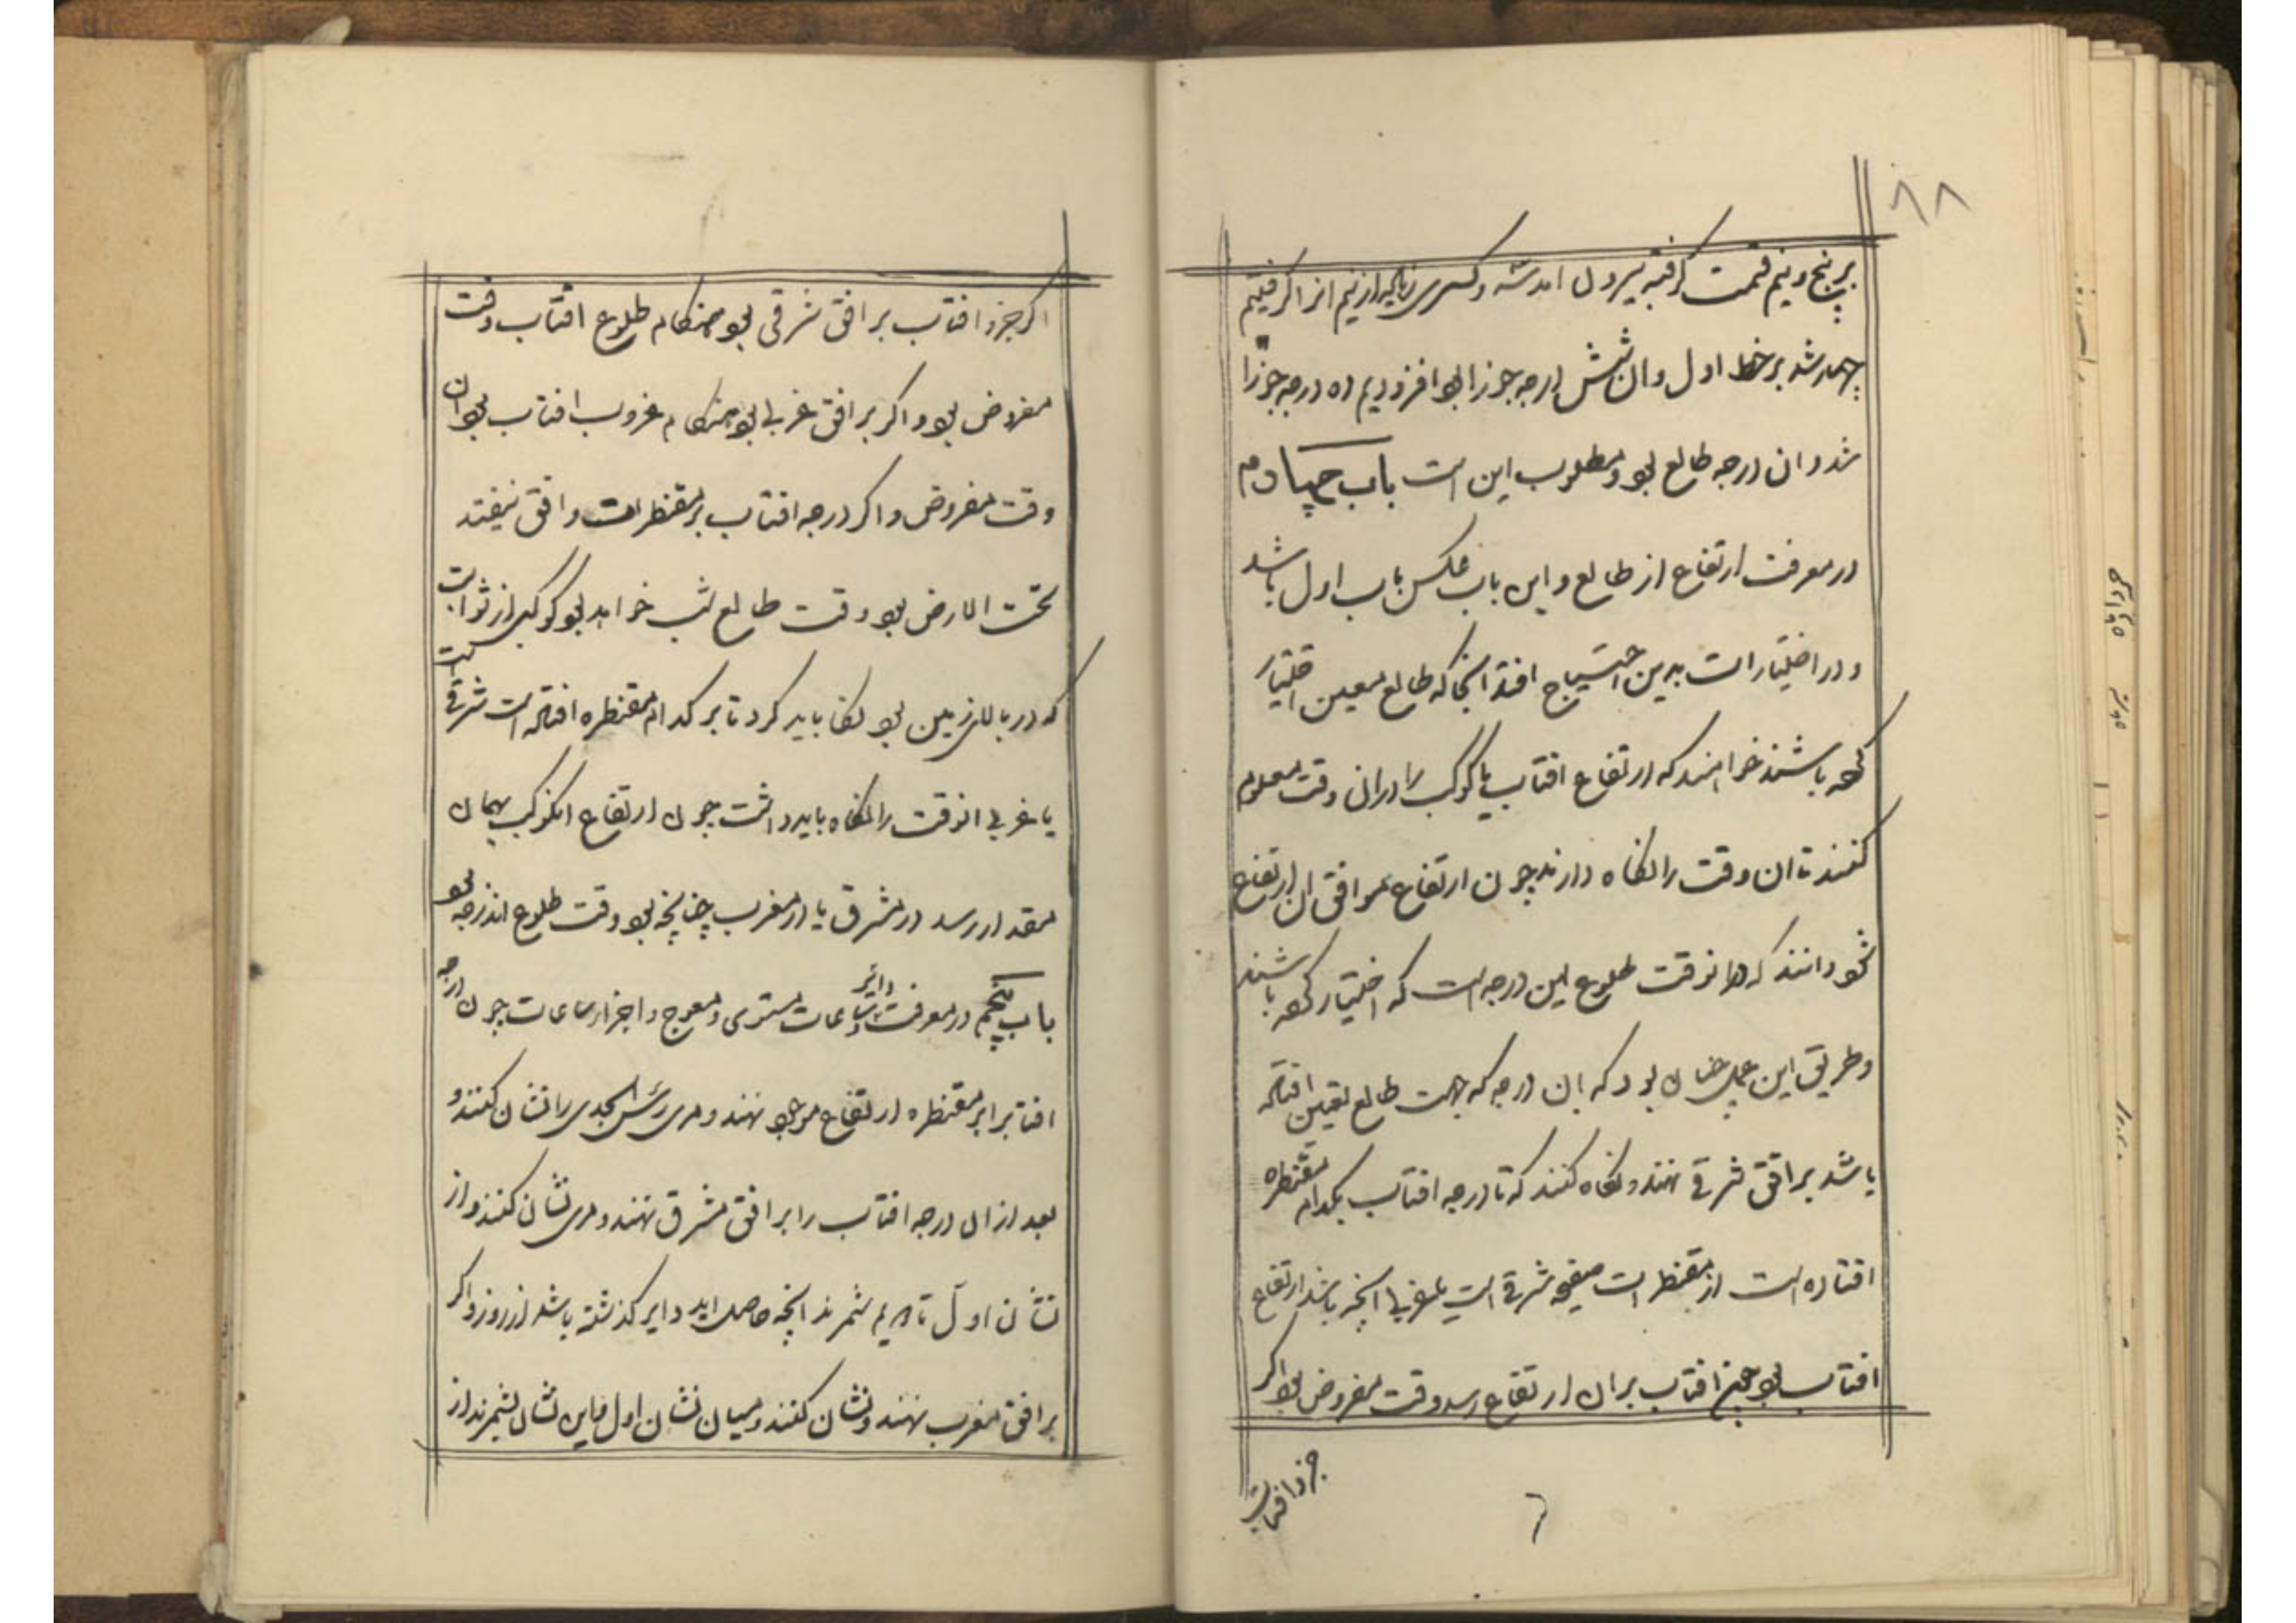 ۸۸
بر پنج و نیم قسمت کرفتیم بیرون امد شه و کسری زیاده از نیم انرا کرفتیم
چهار شد بر خط اول و ان شش درجه جوزا بود افزودیم ده درجه جوزا
شد و ان درجه طالع بود و مطلوب این است باب چهادم
در معرفت ارتفاع از طالع و این باب عکس باب اول باشد
و در اختیارات بدین احتیاج افتد انجا که طالع معین اختیار
کرده باشند خواهند که ارتفاع افتاب یا کوکب را در ان وقت معلوم
کنند تا ان وقت را نکاه دارند چون ارتفاع موافق ان ارتفاع
شود دانند که در انوقت طلوع این درجه است که اختیار کرده باشند
و طریق این عمل چنان بود که ان درجه که جهت طالع تعیین افتاده
باشد بر افق شرقی نهند و نکاه کنند که تا درجه افتاب بکدام مقنطره
افتاده است از مقنطرات صفیحه شرقی است یا غربی انچه باشد ارتفاع
افتاب بود چون افتاب بران ارتفاع رسد وقت مفروض بود اکر
جزو افتاب
۶
اکر جزو افتاب بر افق شرقی بود هنکام طلوع افتاب وقت
مفروض بود و اکر بر افق غربی بود هنکام غروب افتاب بود ان
وقت مفروض و اکر درجه افتاب بر مقنطرات و افق نیفتد
تحت الارض بود وقت طالع شب خواهد بود کوکبی از ثوابت
که در بالای زمین بود نکاه باید کرد تا بر کدام مقنطره افتاده است شرقی است
یا غربی انوقت را نکاه باید داشت چون ارتفاع انکوکب بهمان
مقدار رسد در مشرق یا در مغرب چنانچه بود وقت طلوع اندرجه بود
باب پنجم در معرفت دائر و ساعات مستوی و معوج و اجزا ساعات چون درجه
افتاب را بر مقنطره ارتفاع موجود نهند و مری رأس الجدی را نشان کنند و
بعد از ان درجه افتاب را بر افق مشرق نهند و مری نشان کنند و از
نشان اول تا دویم شمرند انچه حاصل اید دایر کذشته باشد از روز و اکر
بر افق مغرب نهند و نشان کنند و میان نشان اول و این نشان بشمرند از